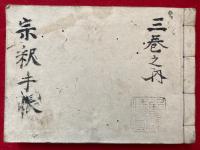 三巻之内
宗釈手帳